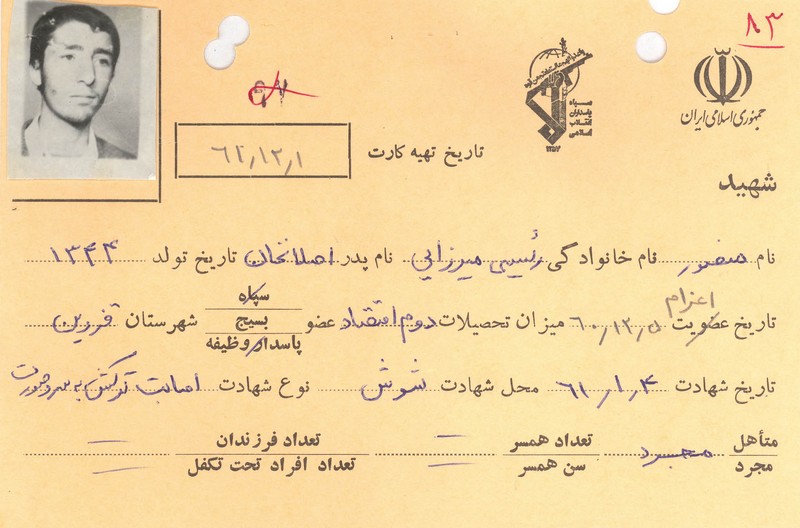 ۸۳
جمهوری اسلامی ایران
سپاه پاسداران انقلاب اسلامی
۱۳۵۷
شهید
تاریخ تهیه کارت ۶۲٫۱۲٫۱
نام منصور نام خانوادگی رئیسی میرزایی نام پدر اصلانخان تاریخ تولد ۱۳۴۴
اعزام
تاریخ عضویت ۶۰٫۱۲٫۵ میزان تحصیلات دوم اقتصاد عضو سپاه بسیج پاسدار وظیفه شهرستان قزوین
تاریخ شهادت ۶۱٫۱٫۴ محل شهادت شوش نوع شهادت اصابت ترکش به سر و صورت
متأهل مجرد مجرد تعداد همسر سن همسر — — تعداد فرزندان تعداد افراد تحت تکفل — —